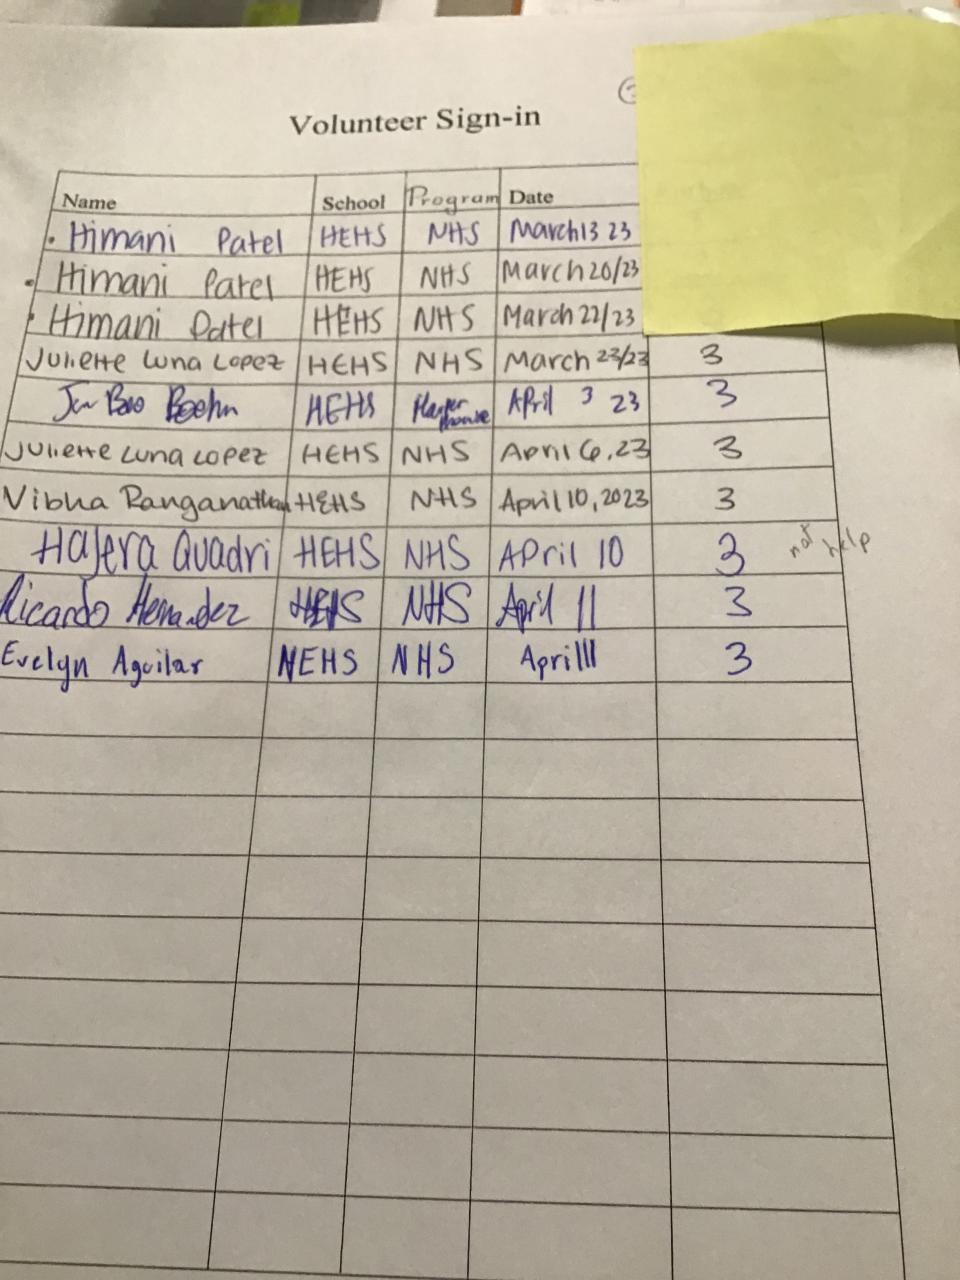 Volunteer Sign-in
Name School Program Date
Himani Patel HEHS NHS March 13 23
Himani Patel HEHS NHS March 20/23
Himani Patel HEHS NHS March 22/23
Juliette Luna Lopez HEHS NHS March 23/23 3
Boehn HEHS Harper house April 3 23 3
Juliette Luna Lopez HEHS NHS April 6, 23 3
Vibha Ranganathan HEHS NHS April 10, 2023 3
Hajera Quadri HEHS NHS April 10 3 not help
Ricardo Hernandez HEHS NHS April 11 3
Evelyn Aguilar NEHS NHS April 11 3